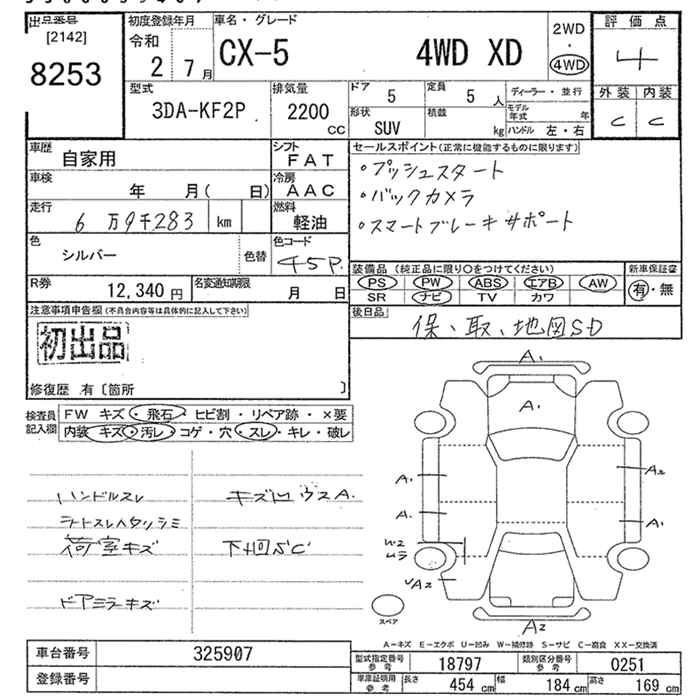 出品番号
[2142]
8253
初度登録年月
令和
2 7月
車名・グレード
CX-5 4WD XD
2WD
・
4WD
評価点
4
外装 内装
C C
型式
3DA-KF2P
排気量
2200
CC
ドア
5
定員
5 人
形状
SUV
積載
kg
ディーラー・並行
モデル年式 年
ハンドル 左・右
車歴
自家用
シフト
FAT
車検
年 月( 日)
冷房
AAC
走行
6万9千283 km
燃料
軽油
色
シルバー
色替
色コード
45P
R券
12,340円
名変通知期限
月 日
セールスポイント(正常に機能するものに限ります)
・プッシュスタート
・バックカメラ
・スマートブレーキサポート
装備品(純正品に限り○をつけてください)
PS PW ABS エアB AW
SR ナビ TV カワ
新車保証書
有・無
後日品
保、取、地図SD
注意事項申告欄(不具合内容等は具体的に記入して下さい)
初出品
修復歴 有〔箇所 〕
検査員記入欄
FW キズ・飛石・ヒビ割・リペア跡・×要
内装 キズ・汚レ・コゲ・穴・スレ・キレ・破レ
ハンドルスレ
荷室キズ
ドアミラーキズ
キズ凹ウスA.
下廻SC
A1
A1
A1
A1
A2
A1
A2
A2
スペア
A-キズ E-エクボ U-凹み W-補修跡 S-サビ C-腐食 XX-交換済
車台番号
325907
登録番号
型式指定番号参考
18797
類別区分番号参考
0251
車庫証明用参考
長さ 454 cm 幅 184 cm 高さ 169 cm